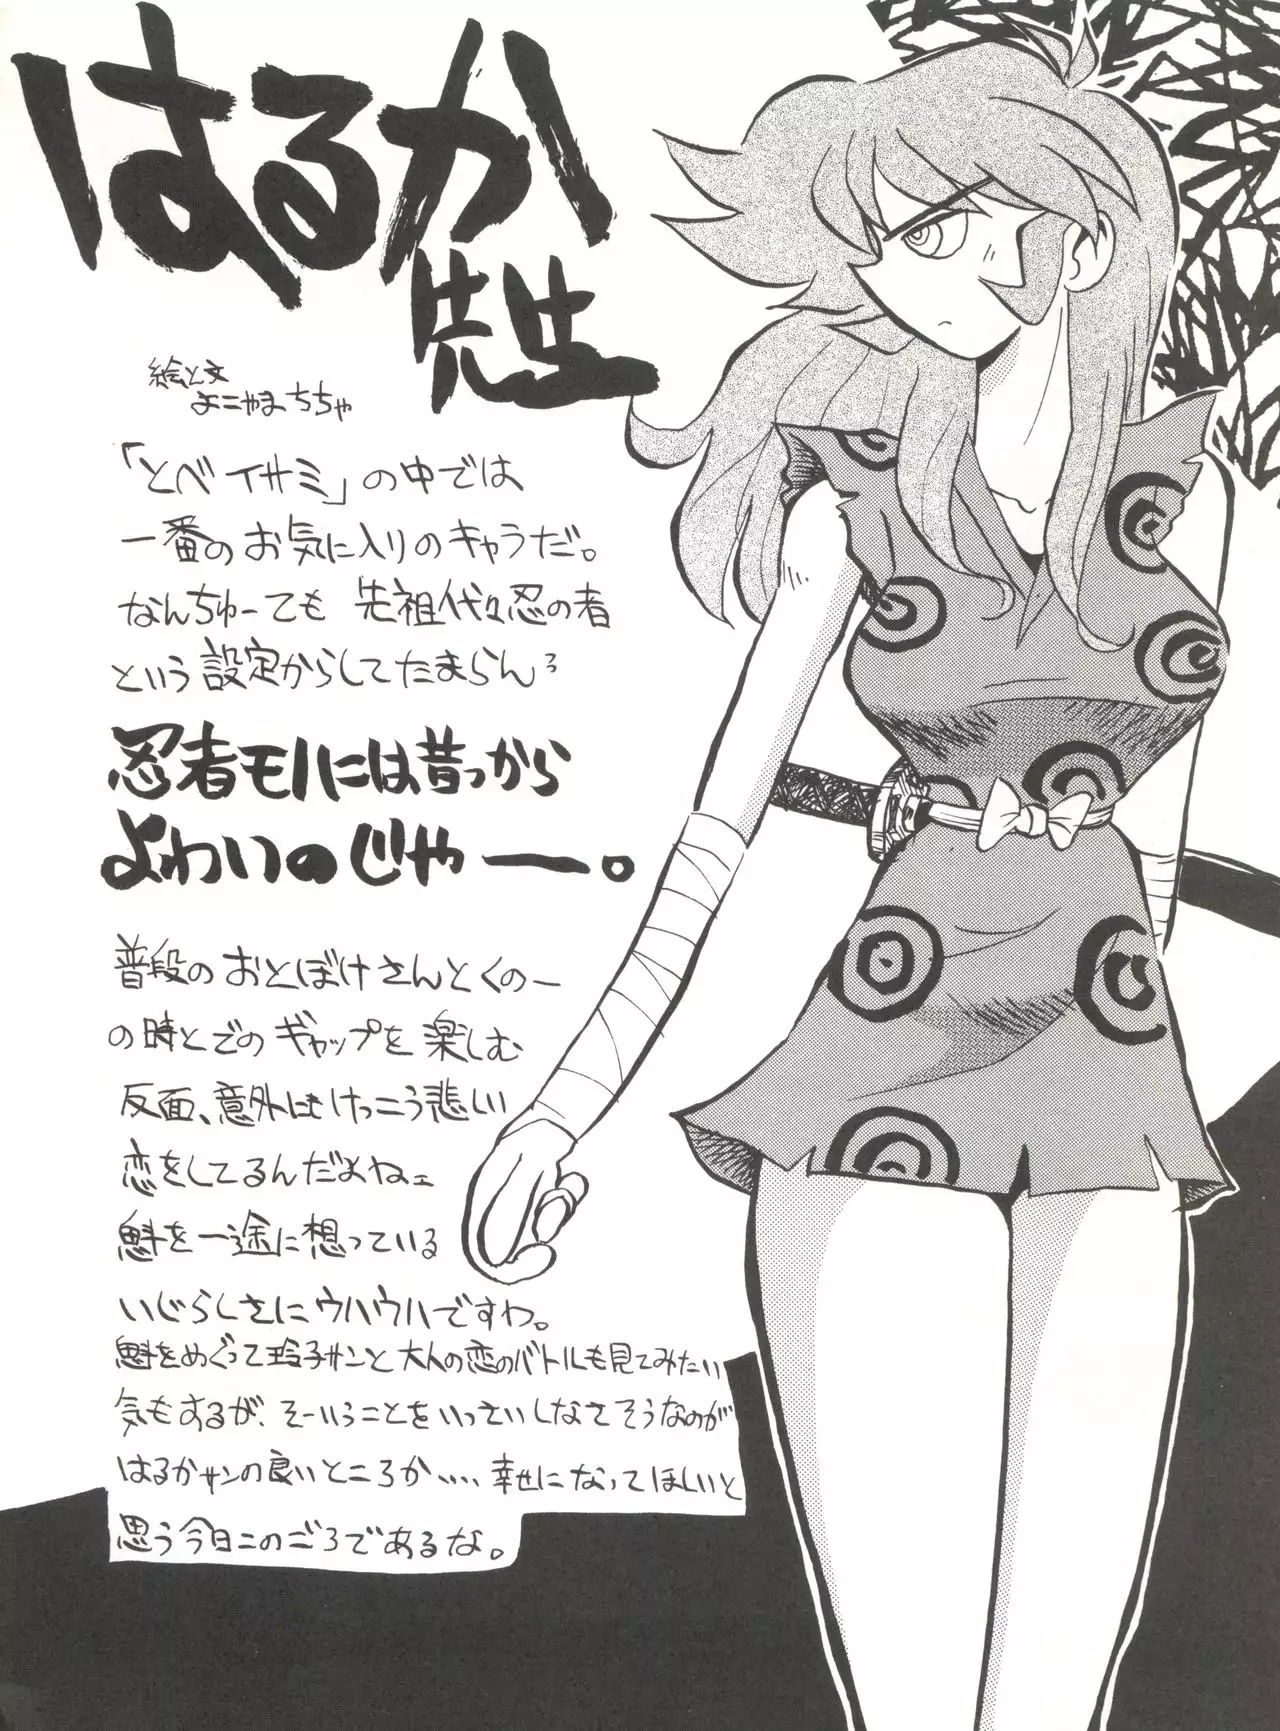 はるか
先生
絵と文
よこやまちちゃ
「とべイサミ」の中では
一番のお気に入りのキャラだ。
なんちゅーても 先祖代々忍の者
という設定からしてたまらんぅ
忍者モノには昔っから
よわいのじゃー。
普段のおとぼけさんとくの一
の時とでのギャップを楽しむ
反面、意外にもけっこう悲しい
恋をしてるんだよねェ
魁を一途に想っている
いじらしさにウハウハですわ。
魁をめぐって玲子サンと大人の恋のバトルも見てみたい
気もするが、そーいうことをいっさいしなさそうなのが
はるかサンの良いところか、、、、幸せになってほしいと
思う今日このごろであるな。